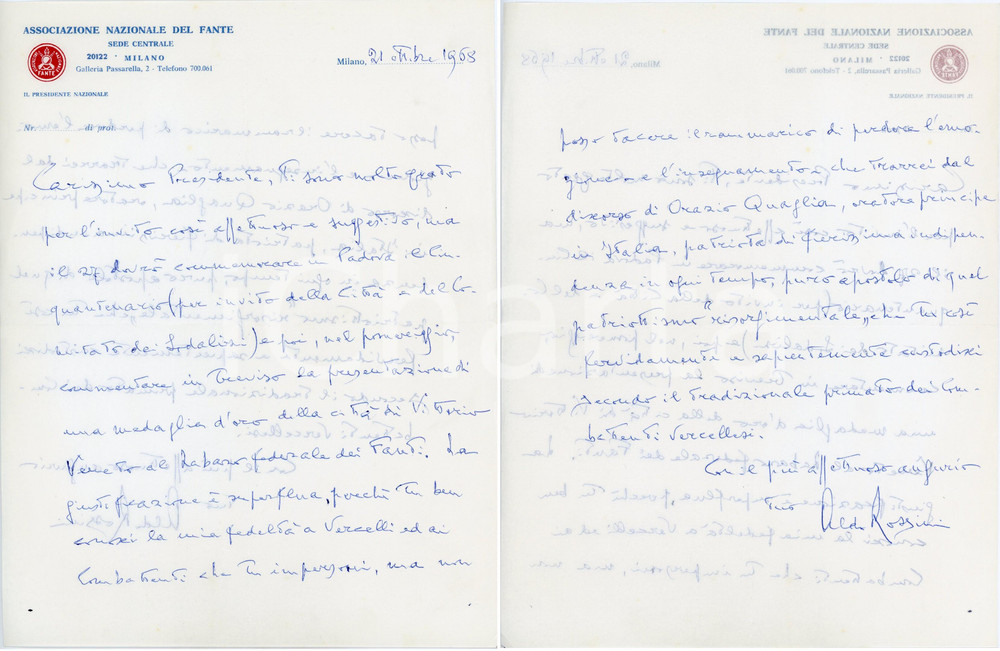 ASSOCIAZIONE NAZIONALE DEL FANTE
SEDE CENTRALE
20122 - MILANO
Galleria Passarella, 2 - Telefono 700.061
FANTE
IL PRESIDENTE NAZIONALE
Milano, 21 ottobre 1968
Nr. di prot.
Carissimo Presidente, Ti sono molto grato
per l'invito così affettuoso e suggestivo, ma
il 27 dovrò commemorare in Padova il Cin-
quantenario (per invito della Città e del Co-
mitato dei Sodalizi) e poi, nel pomeriggio,
commentare in Treviso la presentazione di
una medaglia d'oro della città di Vittorio
Veneto al Labaro federale dei Fanti. La
giustificazione è superflua, perché Tu ben
conosci la mia fedeltà a Vercelli ed ai
Combattenti che Tu impersoni, ma non
posso tacere il rammarico di perdere l'emo-
zione e l'insegnamento che trarrei dal
discorso di Orazio Quaglia, oratore principe
in Italia, patriota di fierissima indipen-
denza in ogni tempo, puro apostolo di quel
patriottismo "risorgimentale" che Tu così
fervidamente e sapientemente custodisci
secondo il tradizionale primato dei Com-
battenti Vercellesi.
Con il più affettuoso augurio
Tuo Aldo Rossini